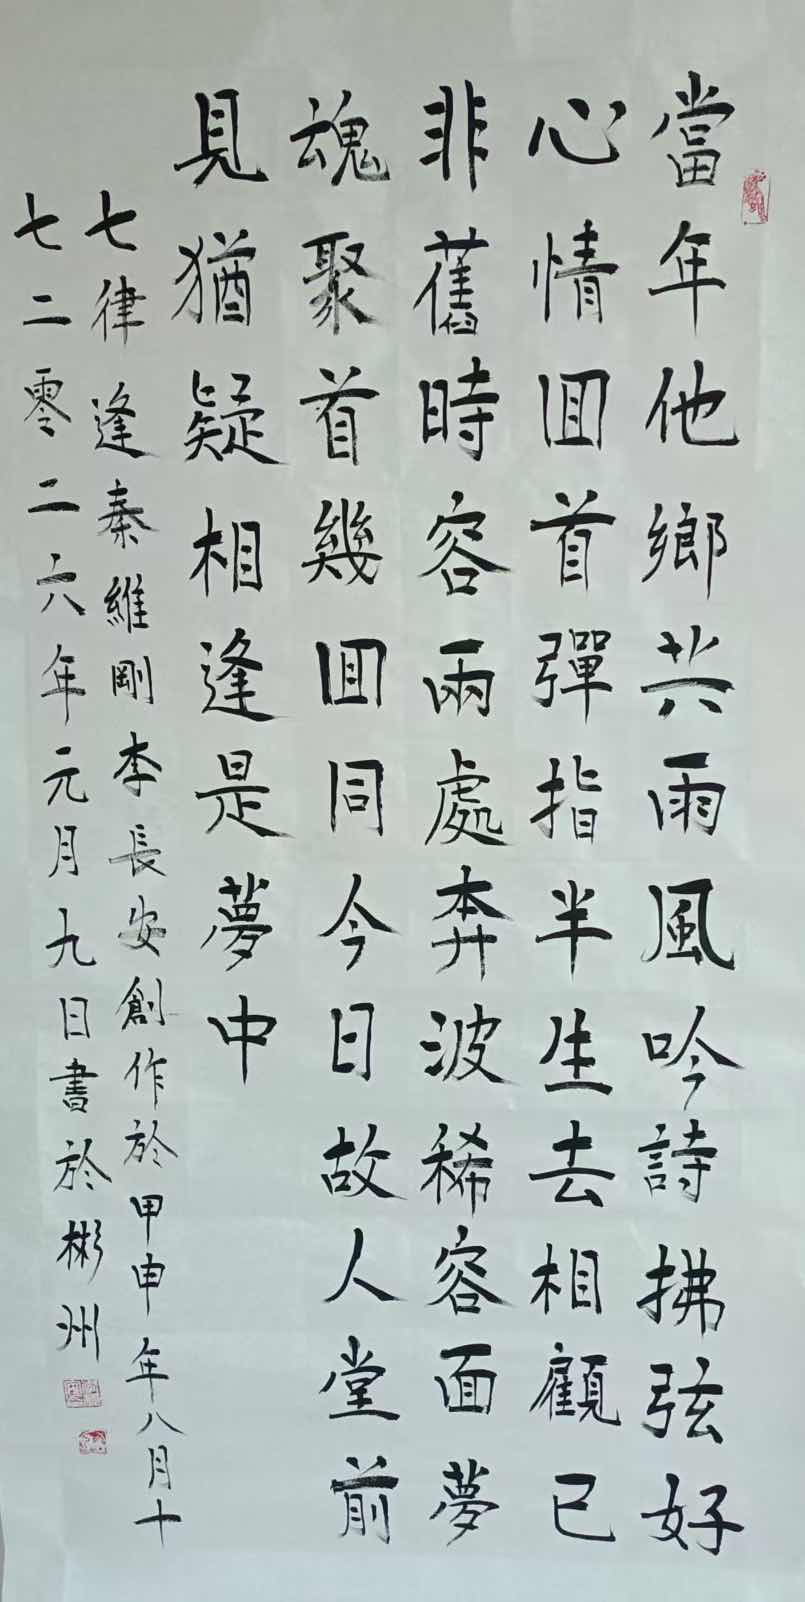 當年他鄉共雨風吟詩拂弦好
心情囬首彈指半生去相顧已
非舊時容兩處奔波稀容面夢
魂聚首幾囬同今日故人堂前
見猶疑相逢是夢中
七律逢秦維剛李長安創作於甲申年八月十
七二零二六年元月九日書於彬州